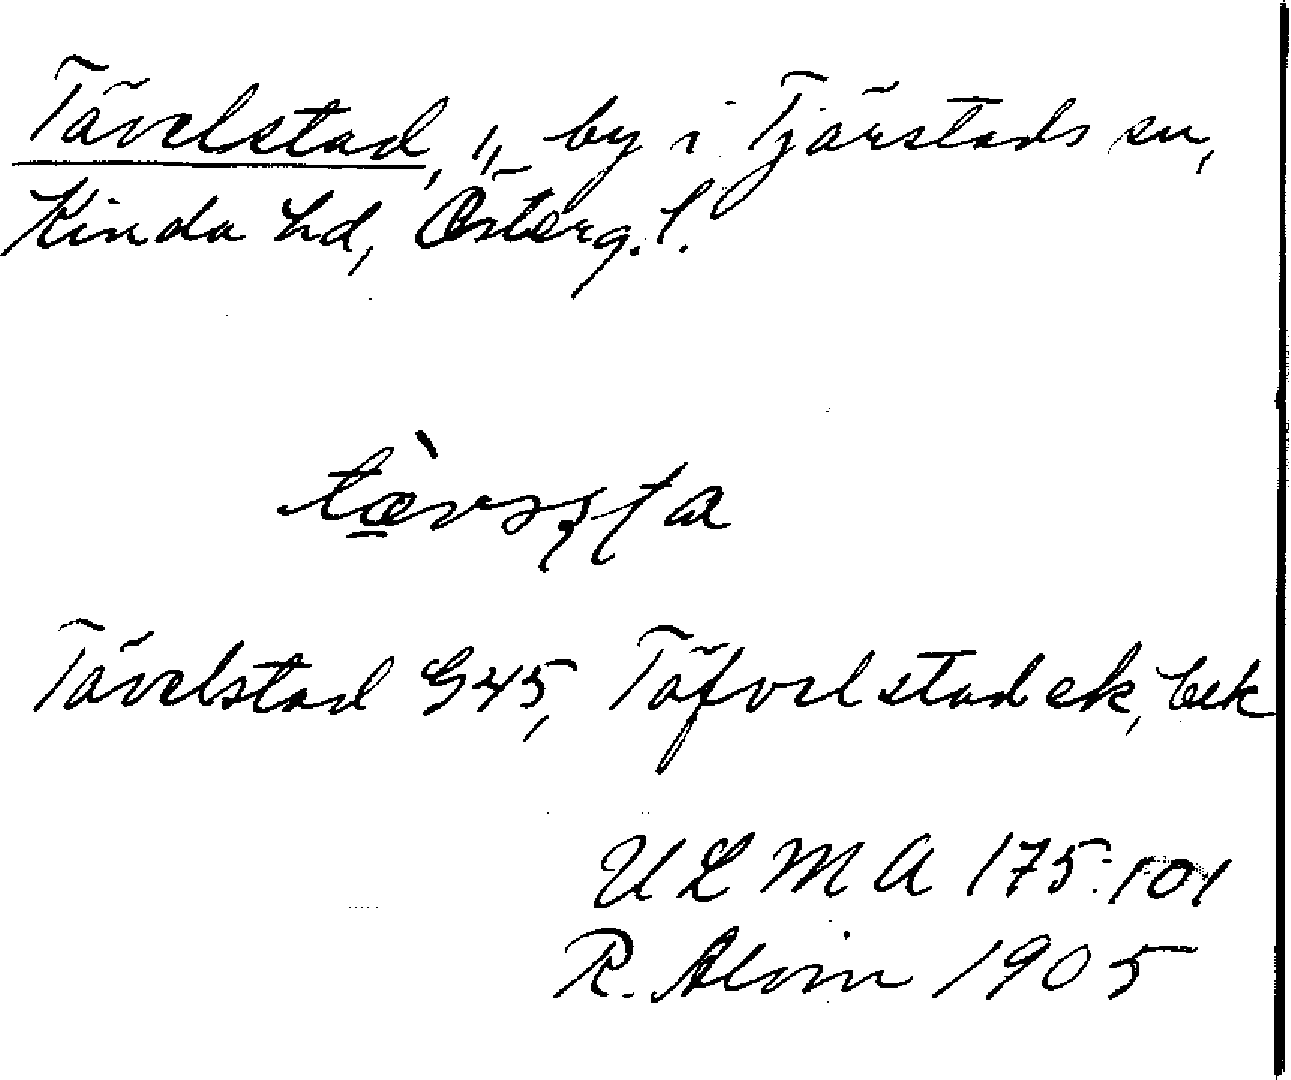 Tävelstad, ", by i Tjärstads sn,
Kinda hd, Österg. l.
Tävelstad G 45, Täfvelstad ek, bek
U L M A 175:101
R. Alvin 1905